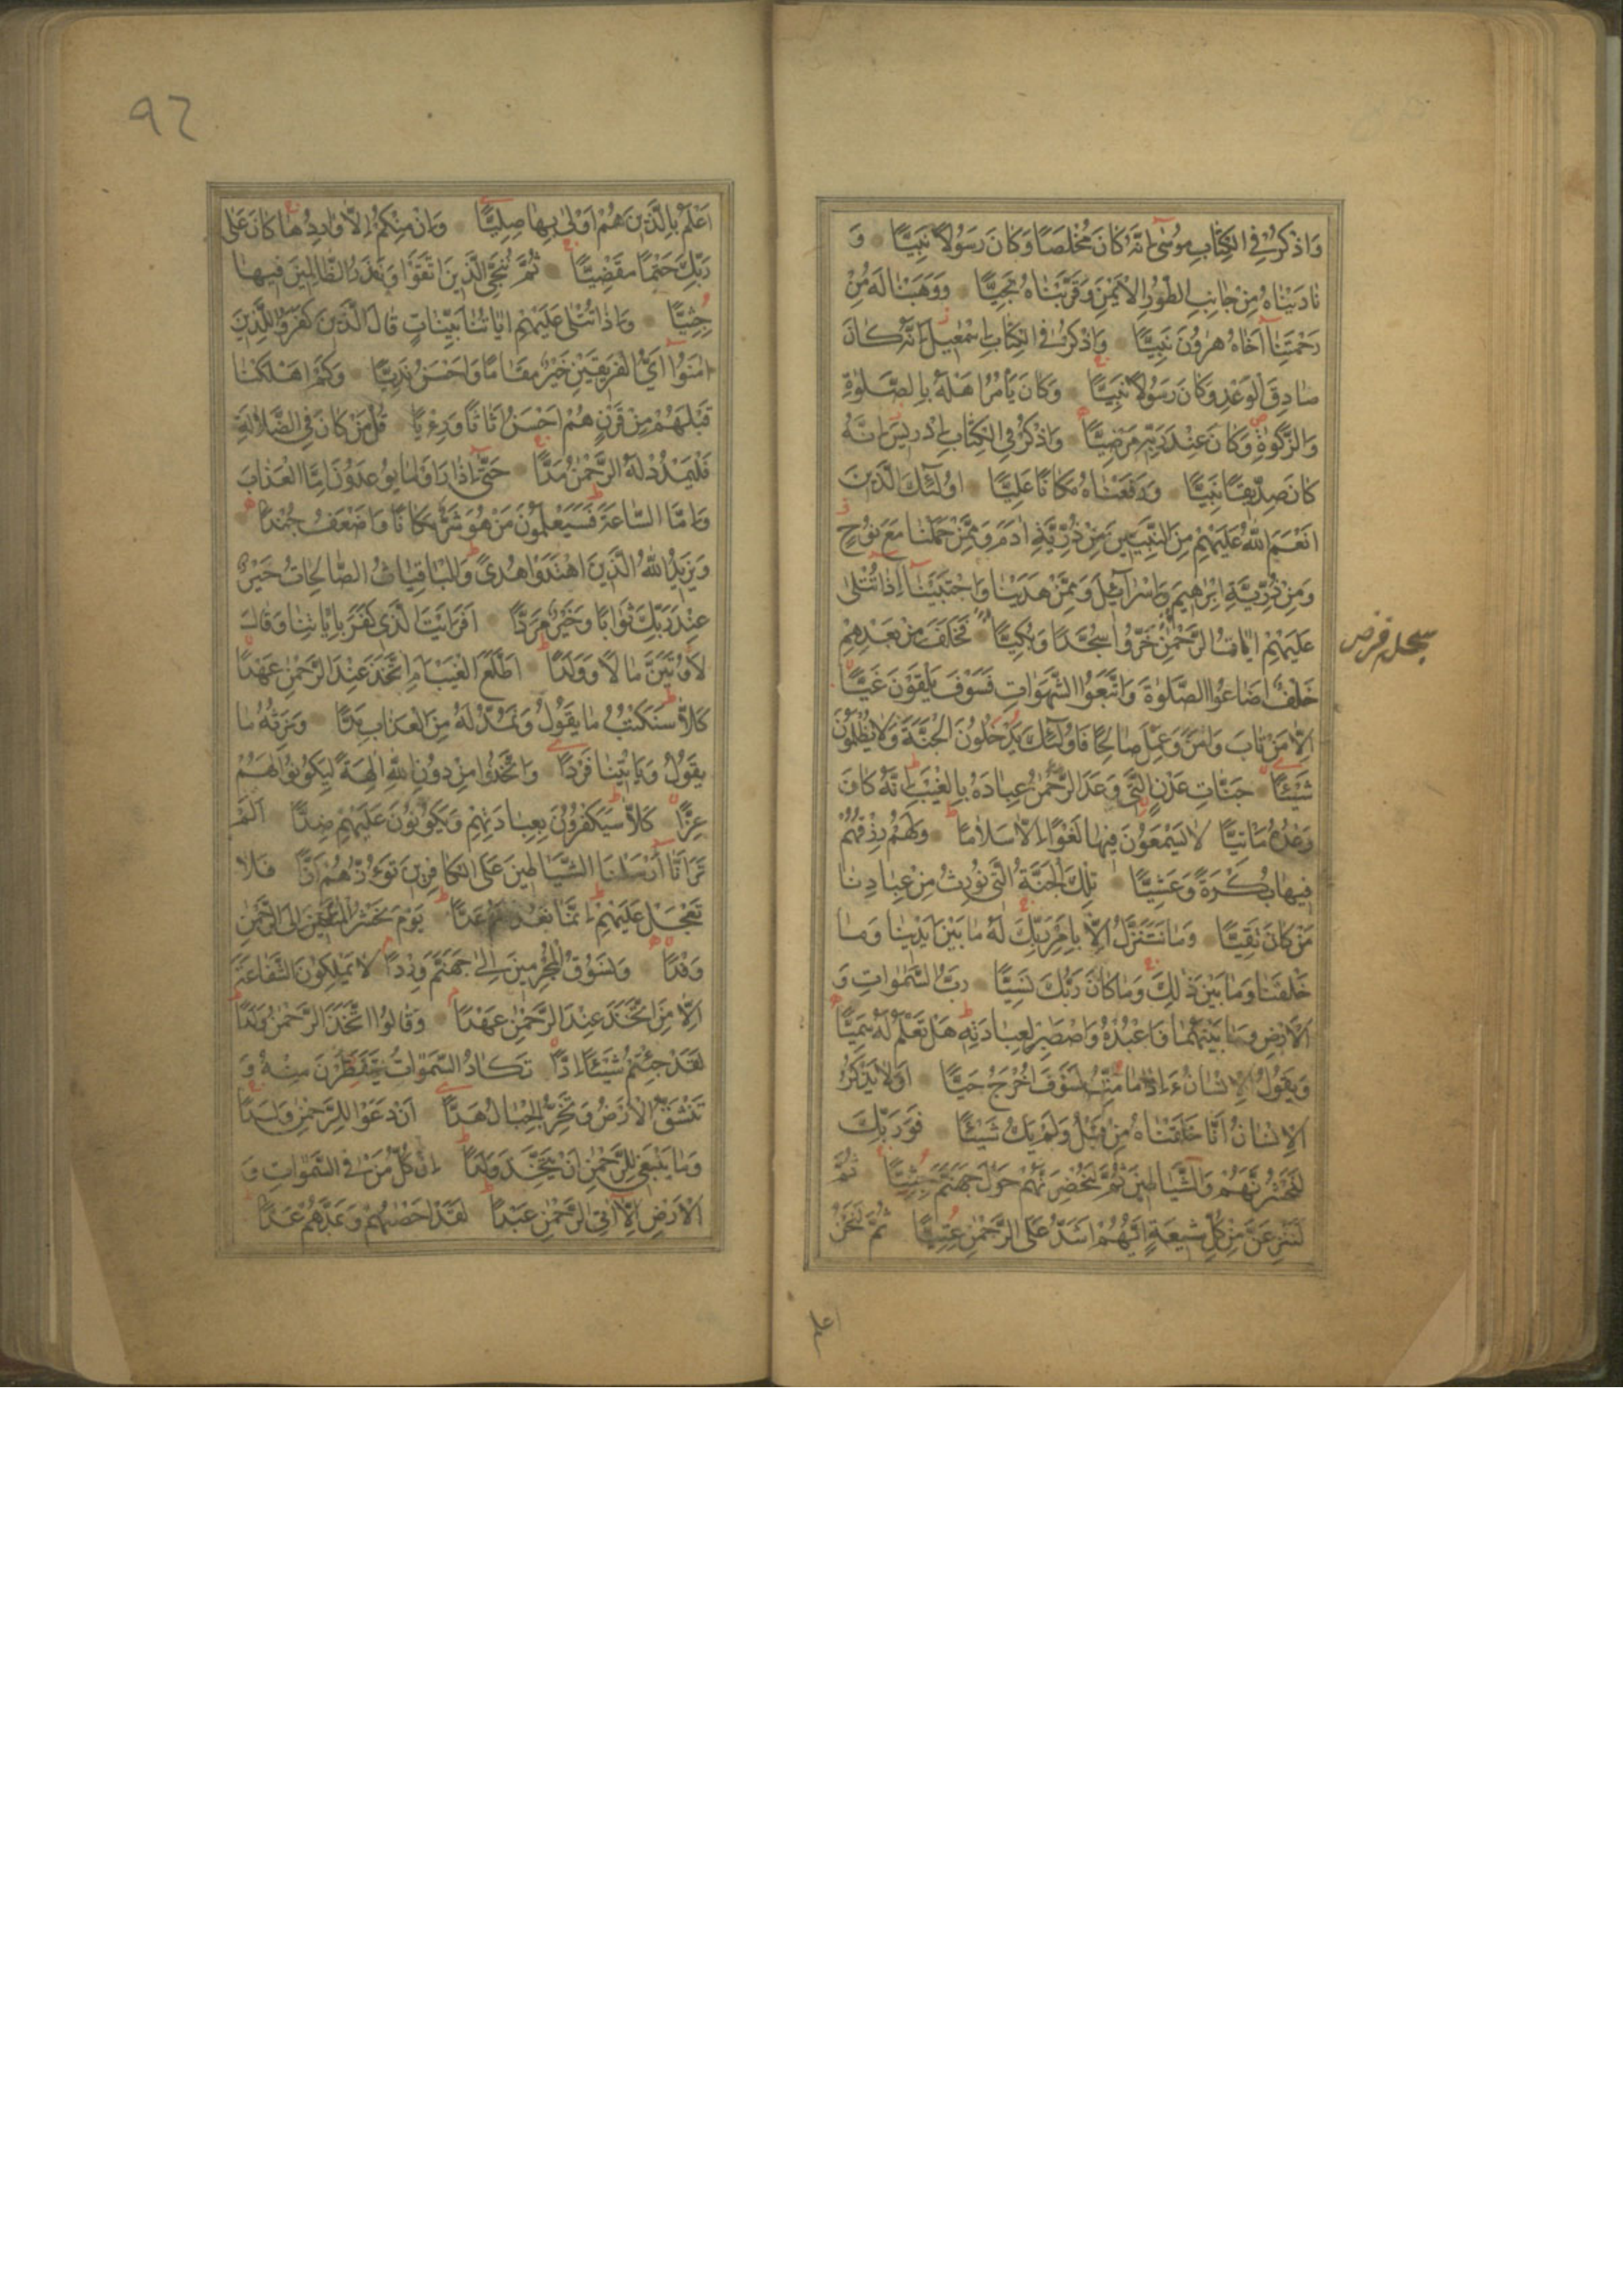 وَاذْكُرْ فِى الْكِتَابِ مُوسٰى اِنَّهُ كَانَ مُخْلَصًا وَكَانَ رَسُولًا نَبِيًّا وَ
نَادَيْنَاهُ مِنْ جَانِبِ الطُّورِ الْاَيْمَنِ وَقَرَّبْنَاهُ نَجِيًّا وَوَهَبْنَا لَهُ مِنْ
رَحْمَتِنَا اَخَاهُ هٰرُونَ نَبِيًّا وَاذْكُرْ فِى الْكِتَابِ اِسْمٰعِيلَ اِنَّهُ كَانَ
صَادِقَ الْوَعْدِ وَكَانَ رَسُولًا نَبِيًّا وَكَانَ يَأْمُرُ اَهْلَهُ بِالصَّلٰوةِ
وَالزَّكٰوةِ وَكَانَ عِنْدَ رَبِّهِ مَرْضِيًّا وَاذْكُرْ فِى الْكِتَابِ اِدْرِيسَ اِنَّهُ
كَانَ صِدِّيقًا نَبِيًّا وَرَفَعْنَاهُ مَكَانًا عَلِيًّا اُولٰئِكَ الَّذِينَ
اَنْعَمَ اللّٰهُ عَلَيْهِمْ مِنَ النَّبِيِّينَ مِنْ ذُرِّيَّةِ اٰدَمَ وَمِمَّنْ حَمَلْنَا مَعَ نُوحٍ
وَمِنْ ذُرِّيَّةِ اِبْرٰهِيمَ وَاِسْرَآئِيلَ وَمِمَّنْ هَدَيْنَا وَاجْتَبَيْنَا اِذَا تُتْلٰى
عَلَيْهِمْ اٰيَاتُ الرَّحْمٰنِ خَرُّوا سُجَّدًا وَبُكِيًّا فَخَلَفَ مِنْ بَعْدِهِمْ
خَلْفٌ اَضَاعُوا الصَّلٰوةَ وَاتَّبَعُوا الشَّهَوَاتِ فَسَوْفَ يَلْقَوْنَ غَيًّا
اِلَّا مَنْ تَابَ وَاٰمَنَ وَعَمِلَ صَالِحًا فَاُولٰئِكَ يَدْخُلُونَ الْجَنَّةَ وَلَا يُظْلَمُونَ
شَيْئًا جَنَّاتِ عَدْنٍ الَّتِى وَعَدَ الرَّحْمٰنُ عِبَادَهُ بِالْغَيْبِ اِنَّهُ كَانَ
وَعْدُهُ مَاْتِيًّا لَا يَسْمَعُونَ فِيهَا لَغْوًا اِلَّا سَلَامًا وَلَهُمْ رِزْقُهُمْ
فِيهَا بُكْرَةً وَعَشِيًّا تِلْكَ الْجَنَّةُ الَّتِى نُورِثُ مِنْ عِبَادِنَا
مَنْ كَانَ تَقِيًّا وَمَا نَتَنَزَّلُ اِلَّا بِاَمْرِ رَبِّكَ لَهُ مَا بَيْنَ اَيْدِينَا وَمَا
خَلْفَنَا وَمَا بَيْنَ ذٰلِكَ وَمَا كَانَ رَبُّكَ نَسِيًّا رَبُّ السَّمٰوَاتِ وَ
الْاَرْضِ وَمَا بَيْنَهُمَا فَاعْبُدْهُ وَاصْطَبِرْ لِعِبَادَتِهِ هَلْ تَعْلَمُ لَهُ سَمِيًّا
وَيَقُولُ الْاِنْسَانُ ءَاِذَا مَا مِتُّ لَسَوْفَ اُخْرَجُ حَيًّا اَوَلَا يَذْكُرُ
الْاِنْسَانُ اَنَّا خَلَقْنَاهُ مِنْ قَبْلُ وَلَمْ يَكُ شَيْئًا فَوَرَبِّكَ
لَنَحْشُرَنَّهُمْ وَالشَّيَاطِينَ ثُمَّ لَنُحْضِرَنَّهُمْ حَوْلَ جَهَنَّمَ جِثِيًّا ثُمَّ
لَنَنْزِعَنَّ مِنْ كُلِّ شِيعَةٍ اَيُّهُمْ اَشَدُّ عَلَى الرَّحْمٰنِ عِتِيًّا ثُمَّ لَنَحْنُ
اعلم
٩٦
اَعْلَمُ بِالَّذِينَ هُمْ اَوْلٰى بِهَا صِلِيًّا وَاِنْ مِنْكُمْ اِلَّا وَارِدُهَا كَانَ عَلٰى
رَبِّكَ حَتْمًا مَقْضِيًّا ثُمَّ نُنَجِّى الَّذِينَ اتَّقَوْا وَنَذَرُ الظَّالِمِينَ فِيهَا
جِثِيًّا وَاِذَا تُتْلٰى عَلَيْهِمْ اٰيَاتُنَا بَيِّنَاتٍ قَالَ الَّذِينَ كَفَرُوا لِلَّذِينَ
اٰمَنُوا اَىُّ الْفَرِيقَيْنِ خَيْرٌ مَقَامًا وَاَحْسَنُ نَدِيًّا وَكَمْ اَهْلَكْنَا
قَبْلَهُمْ مِنْ قَرْنٍ هُمْ اَحْسَنُ اَثَاثًا وَرِءْيًا قُلْ مَنْ كَانَ فِى الضَّلَالَةِ
فَلْيَمْدُدْ لَهُ الرَّحْمٰنُ مَدًّا حَتّٰى اِذَا رَاَوْا مَا يُوعَدُونَ اِمَّا الْعَذَابَ
وَاِمَّا السَّاعَةَ فَسَيَعْلَمُونَ مَنْ هُوَ شَرٌّ مَكَانًا وَاَضْعَفُ جُنْدًا
وَيَزِيدُ اللّٰهُ الَّذِينَ اهْتَدَوْا هُدًى وَالْبَاقِيَاتُ الصَّالِحَاتُ خَيْرٌ
عِنْدَ رَبِّكَ ثَوَابًا وَخَيْرٌ مَرَدًّا اَفَرَاَيْتَ الَّذِى كَفَرَ بِاٰيَاتِنَا وَقَالَ
لَاُوتَيَنَّ مَالًا وَوَلَدًا اَطَّلَعَ الْغَيْبَ اَمِ اتَّخَذَ عِنْدَ الرَّحْمٰنِ عَهْدًا
كَلَّا سَنَكْتُبُ مَا يَقُولُ وَنَمُدُّ لَهُ مِنَ الْعَذَابِ مَدًّا وَنَرِثُهُ مَا
يَقُولُ وَيَاْتِينَا فَرْدًا وَاتَّخَذُوا مِنْ دُونِ اللّٰهِ اٰلِهَةً لِيَكُونُوا لَهُمْ
عِزًّا كَلَّا سَيَكْفُرُونَ بِعِبَادَتِهِمْ وَيَكُونُونَ عَلَيْهِمْ ضِدًّا اَلَمْ
تَرَ اَنَّا اَرْسَلْنَا الشَّيَاطِينَ عَلَى الْكَافِرِينَ تَؤُزُّهُمْ اَزًّا فَلَا
تَعْجَلْ عَلَيْهِمْ اِنَّمَا نَعُدُّ لَهُمْ عَدًّا يَوْمَ نَحْشُرُ الْمُتَّقِينَ اِلَى الرَّحْمٰنِ
وَفْدًا وَنَسُوقُ الْمُجْرِمِينَ اِلٰى جَهَنَّمَ وِرْدًا لَا يَمْلِكُونَ الشَّفَاعَةَ
اِلَّا مَنِ اتَّخَذَ عِنْدَ الرَّحْمٰنِ عَهْدًا وَقَالُوا اتَّخَذَ الرَّحْمٰنُ وَلَدًا
لَقَدْ جِئْتُمْ شَيْئًا اِدًّا تَكَادُ السَّمٰوَاتُ يَتَفَطَّرْنَ مِنْهُ وَ
تَنْشَقُّ الْاَرْضُ وَتَخِرُّ الْجِبَالُ هَدًّا اَنْ دَعَوْا لِلرَّحْمٰنِ وَلَدًا
وَمَا يَنْبَغِى لِلرَّحْمٰنِ اَنْ يَتَّخِذَ وَلَدًا اِنْ كُلُّ مَنْ فِى السَّمٰوَاتِ وَ
الْاَرْضِ اِلَّا اٰتِى الرَّحْمٰنِ عَبْدًا لَقَدْ اَحْصٰيهُمْ وَعَدَّهُمْ عَدًّا